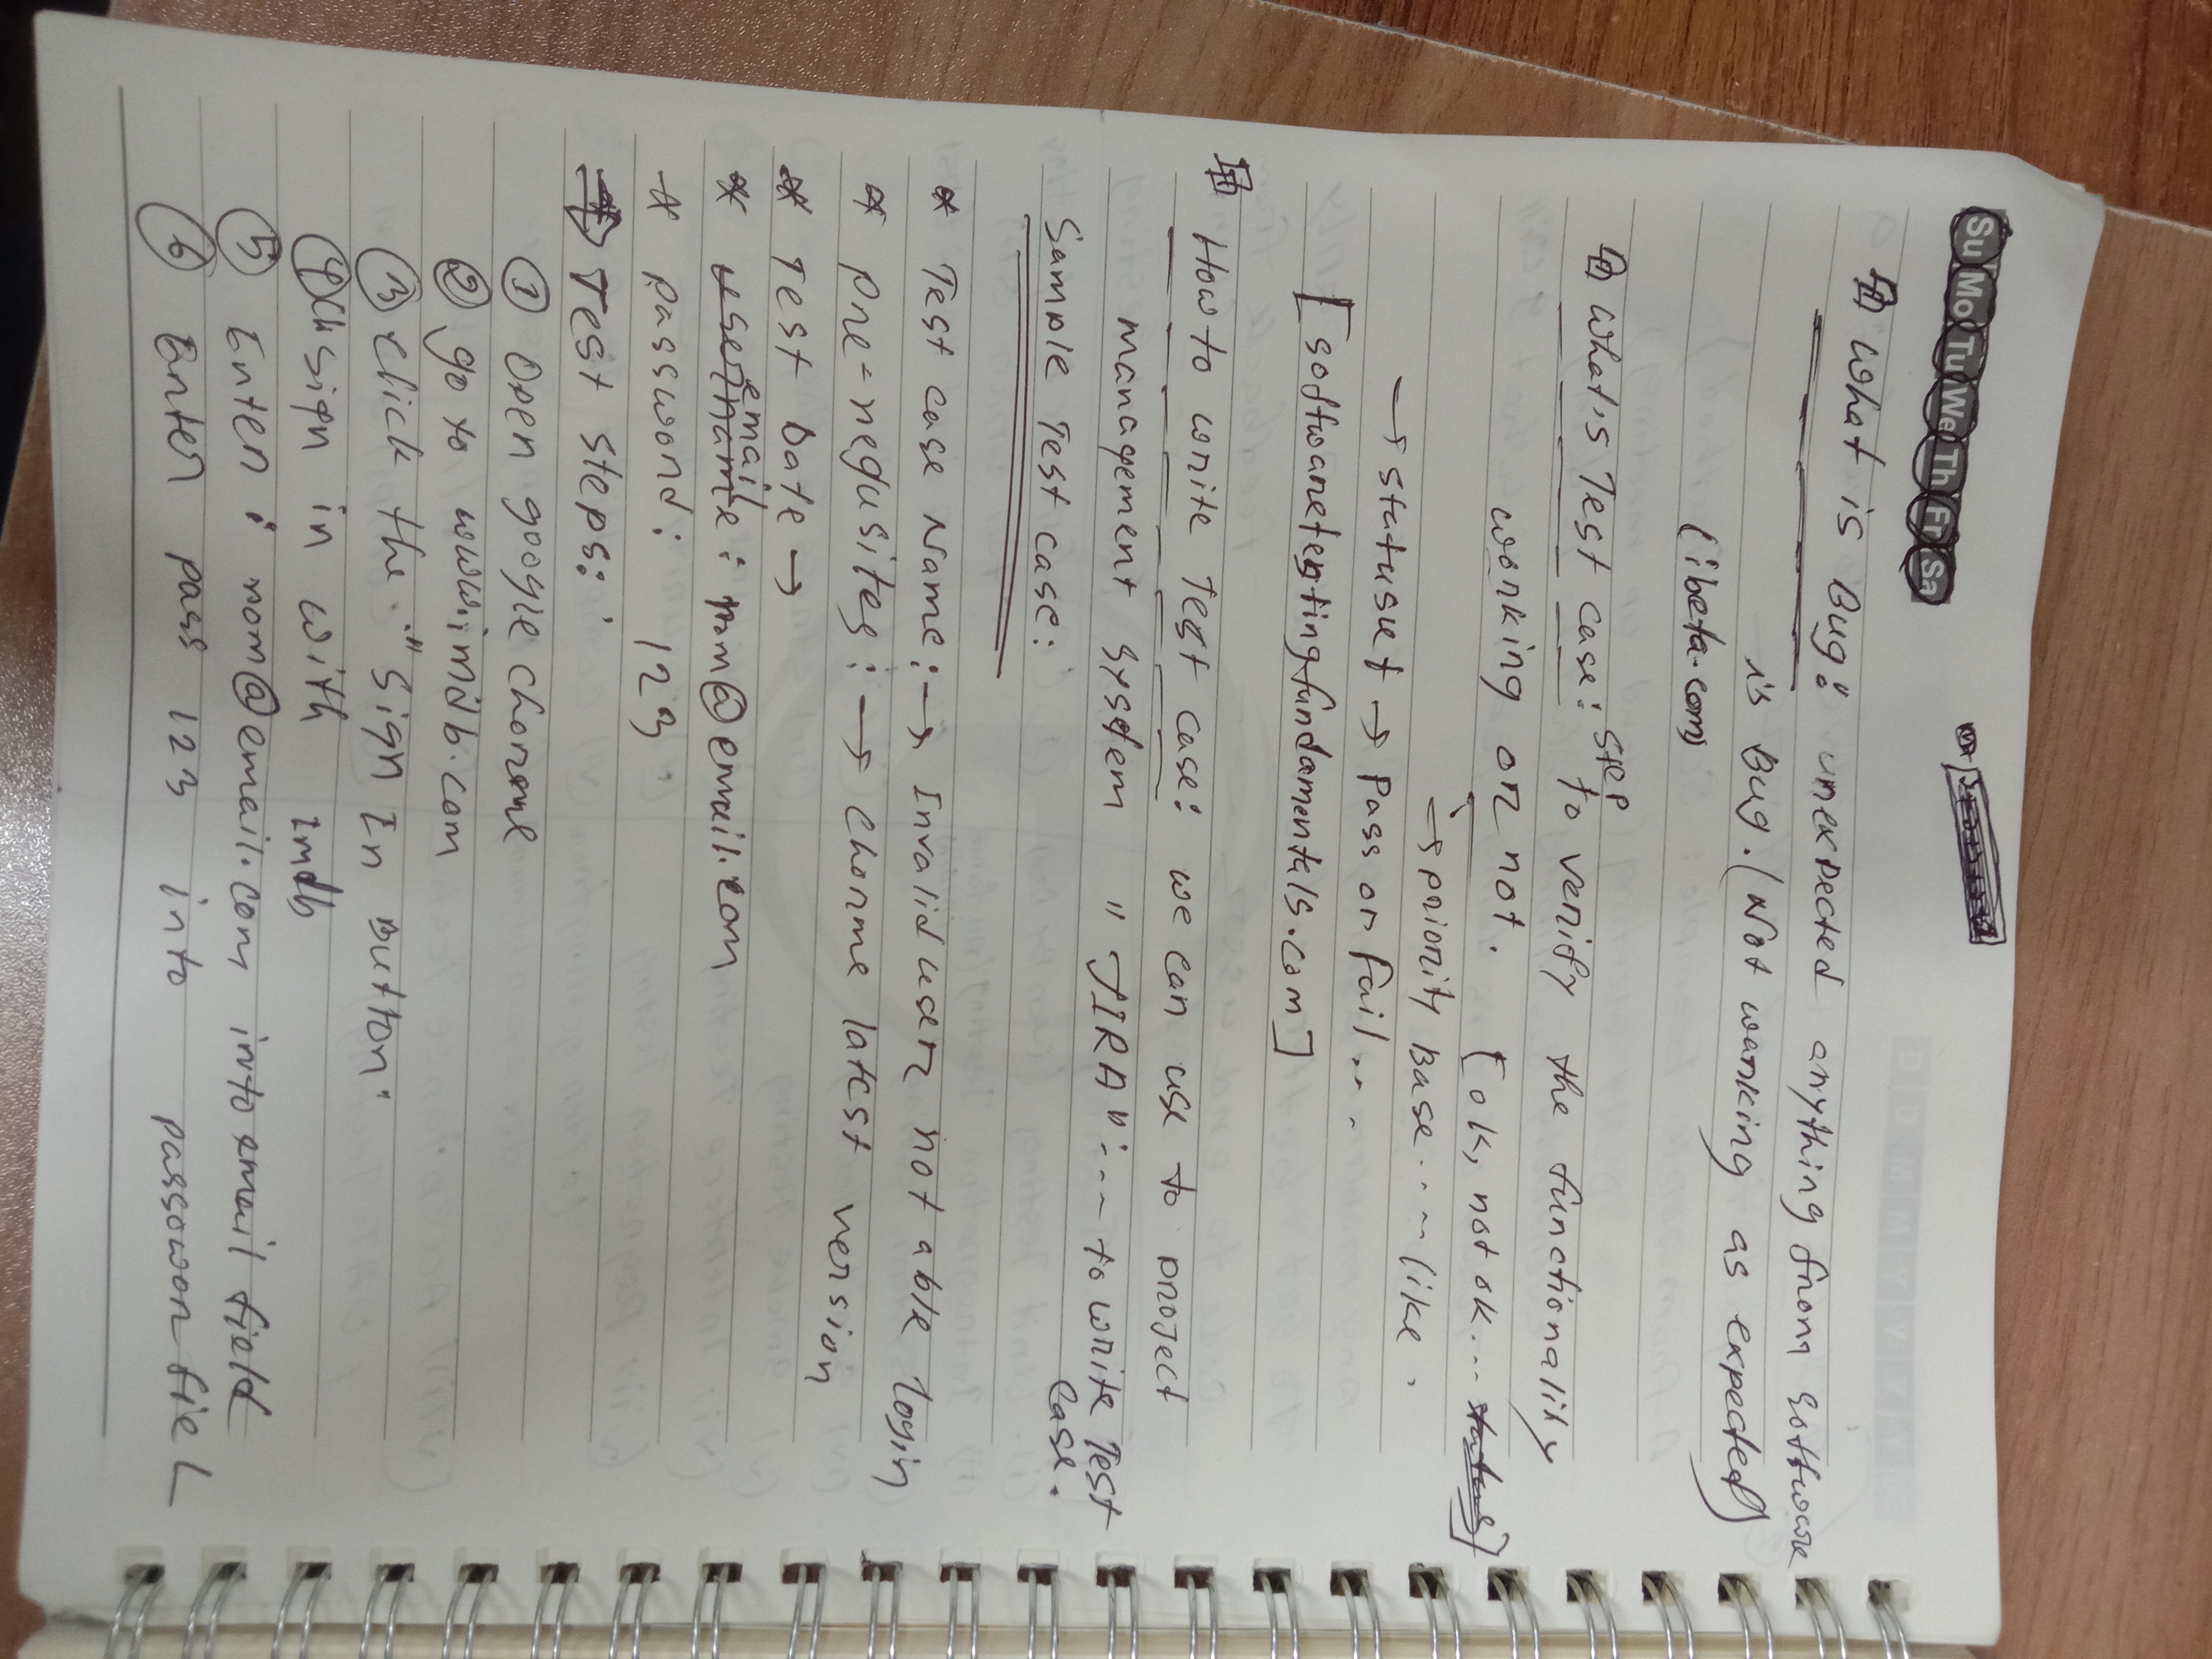 Su Mo Tu We Th Fr Sa
D D M M Y Y Y Y
What is Bug: unexpected anything from software
is Bug. (Not working as expected)
(ibeta.com)
What's Test case: step to verify the functionality
working or not. [ok, not ok... status]
→ priority Base..... like
→ status → Pass or fail...
[softwaretestingfundamentals.com]
How to write Test case: we can use to project
management system "JIRA"... to write Test
case.
Sample Test case:
* Test case Name: → Invalid user not able login
* pre-requsites: → Chorme latest version
* Test Date →
email
* username: rom@email.com
* password: 123
Test steps:
① Open google Chorome
② go to www.imdb.com
③ click the "Sign In Button"
④ sign in with Imdb
⑤ Enter: rom@email.com into email field
⑥ Enter pass 123 into passowor fiel